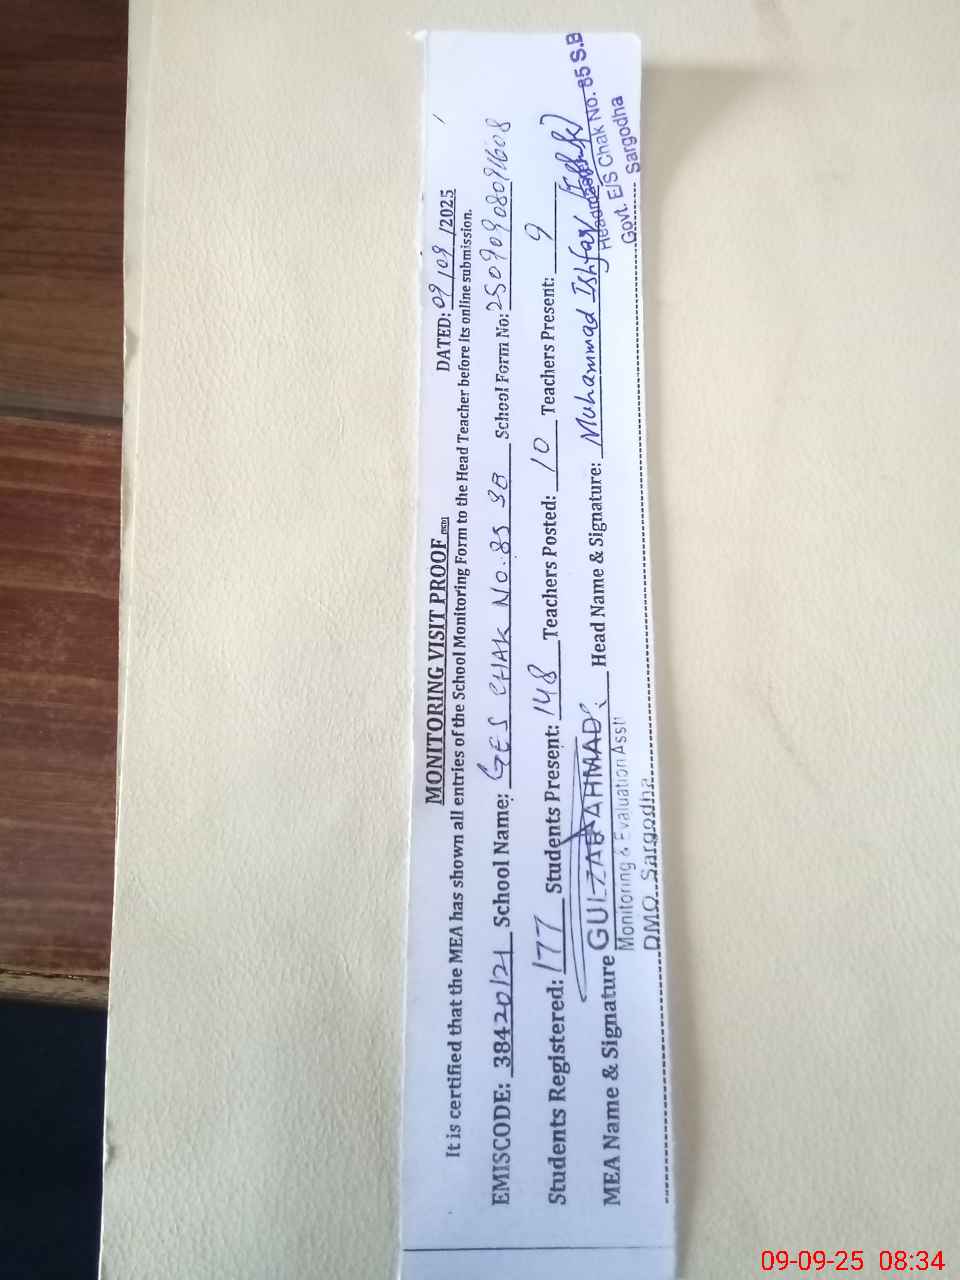 MONITORING VISIT PROOF
DATED: 09/09/2025
It is certified that the MEA has shown all entries of the School Monitoring Form to the Head Teacher before its online submission.
EMISCODE: 38420121 School Name: GES CHAK No. 85 SB School Form No: 25090908091608
Students Registered: 177 Students Present: 148 Teachers Posted: 10 Teachers Present: 9
MEA Name & Signature GULZAB AHMAD Head Name & Signature: Muhammad Ishfaq
Monitoring & Evaluation Asstt
DMO Sargodha
Headmaster
Govt. E/S Chak No. 85 S.B
Sargodha
09-09-25 08:34